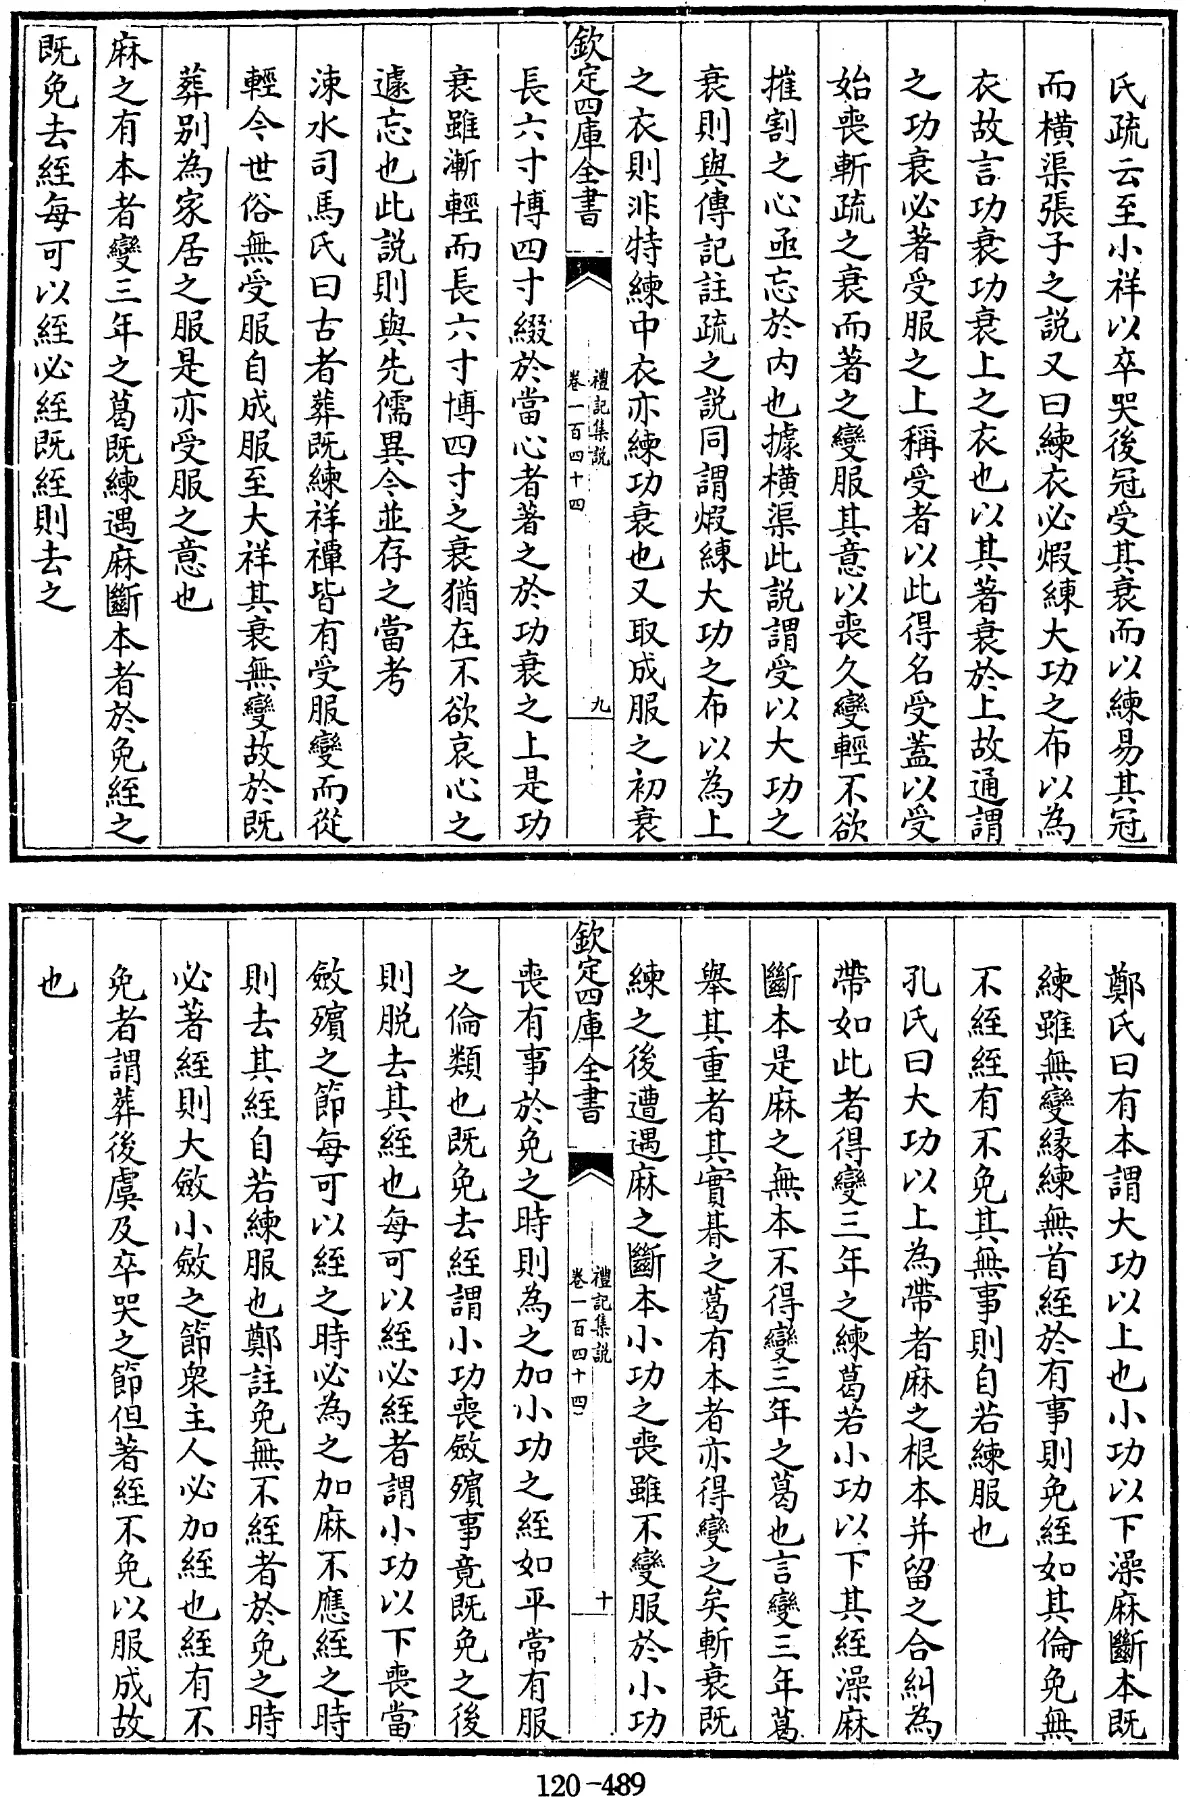 氏疏云至小祥以卒哭後冠受其衰而以練易其冠
而橫渠張子之説又曰練衣必煆練大功之布以為
衣故言功衰功衰上之衣也以其著衰於上故通謂
之功衰必著受服之上稱受者以此得名受蓋以受
始喪斬疏之衰而著之變服其意以喪久變輕不欲
摧割之心亟忘於内也據橫渠此説謂受以大功之
衰則與傳記註疏之説同謂煆練大功之布以為上
之衣則非特練中衣亦練功衰也又取成服之初衰
欽定四庫全書
禮記集説
卷一百四十四
九
長六寸博四寸綴於當心者著之於功衰之上是功
衰雖漸輕而長六寸博四寸之衰猶在不欲哀心之
遽忘也此説則與先儒異今並存之當考
涑水司馬氏曰古者葬既練祥禫皆有受服變而從
輕今世俗無受服自成服至大祥其衰無變故於既
葬别為家居之服是亦受服之意也
麻之有本者變三年之葛既練遇麻斷本者於免絰之
既免去絰每可以絰必絰既絰則去之
鄭氏曰有本謂大功以上也小功以下澡麻斷本既
練雖無變緣練無首絰於有事則免絰如其倫免無
不絰絰有不免其無事則自若練服也
孔氏曰大功以上為帶者麻之根本并留之合糾為
帶如此者得變三年之練葛若小功以下其絰澡麻
斷本是麻之無本不得變三年之葛也言變三年葛
舉其重者其實朞之葛有本者亦得變之矣斬衰既
練之後遭遇麻之斷本小功之喪雖不變服於小功
欽定四庫全書
禮記集説
卷一百四十四
十
喪有事於免之時則為之加小功之絰如平常有服
之倫類也既免去絰謂小功喪斂殯事竟既免之後
則脱去其絰也每可以絰必絰者謂小功以下喪當
斂殯之節每可以絰之時必為之加麻不應絰之時
則去其絰自若練服也鄭註免無不絰者於免之時
必著絰則大斂小斂之節衆主人必加絰也絰有不
免者謂葬後虞及卒哭之節但著絰不免以服成故
也
120-489